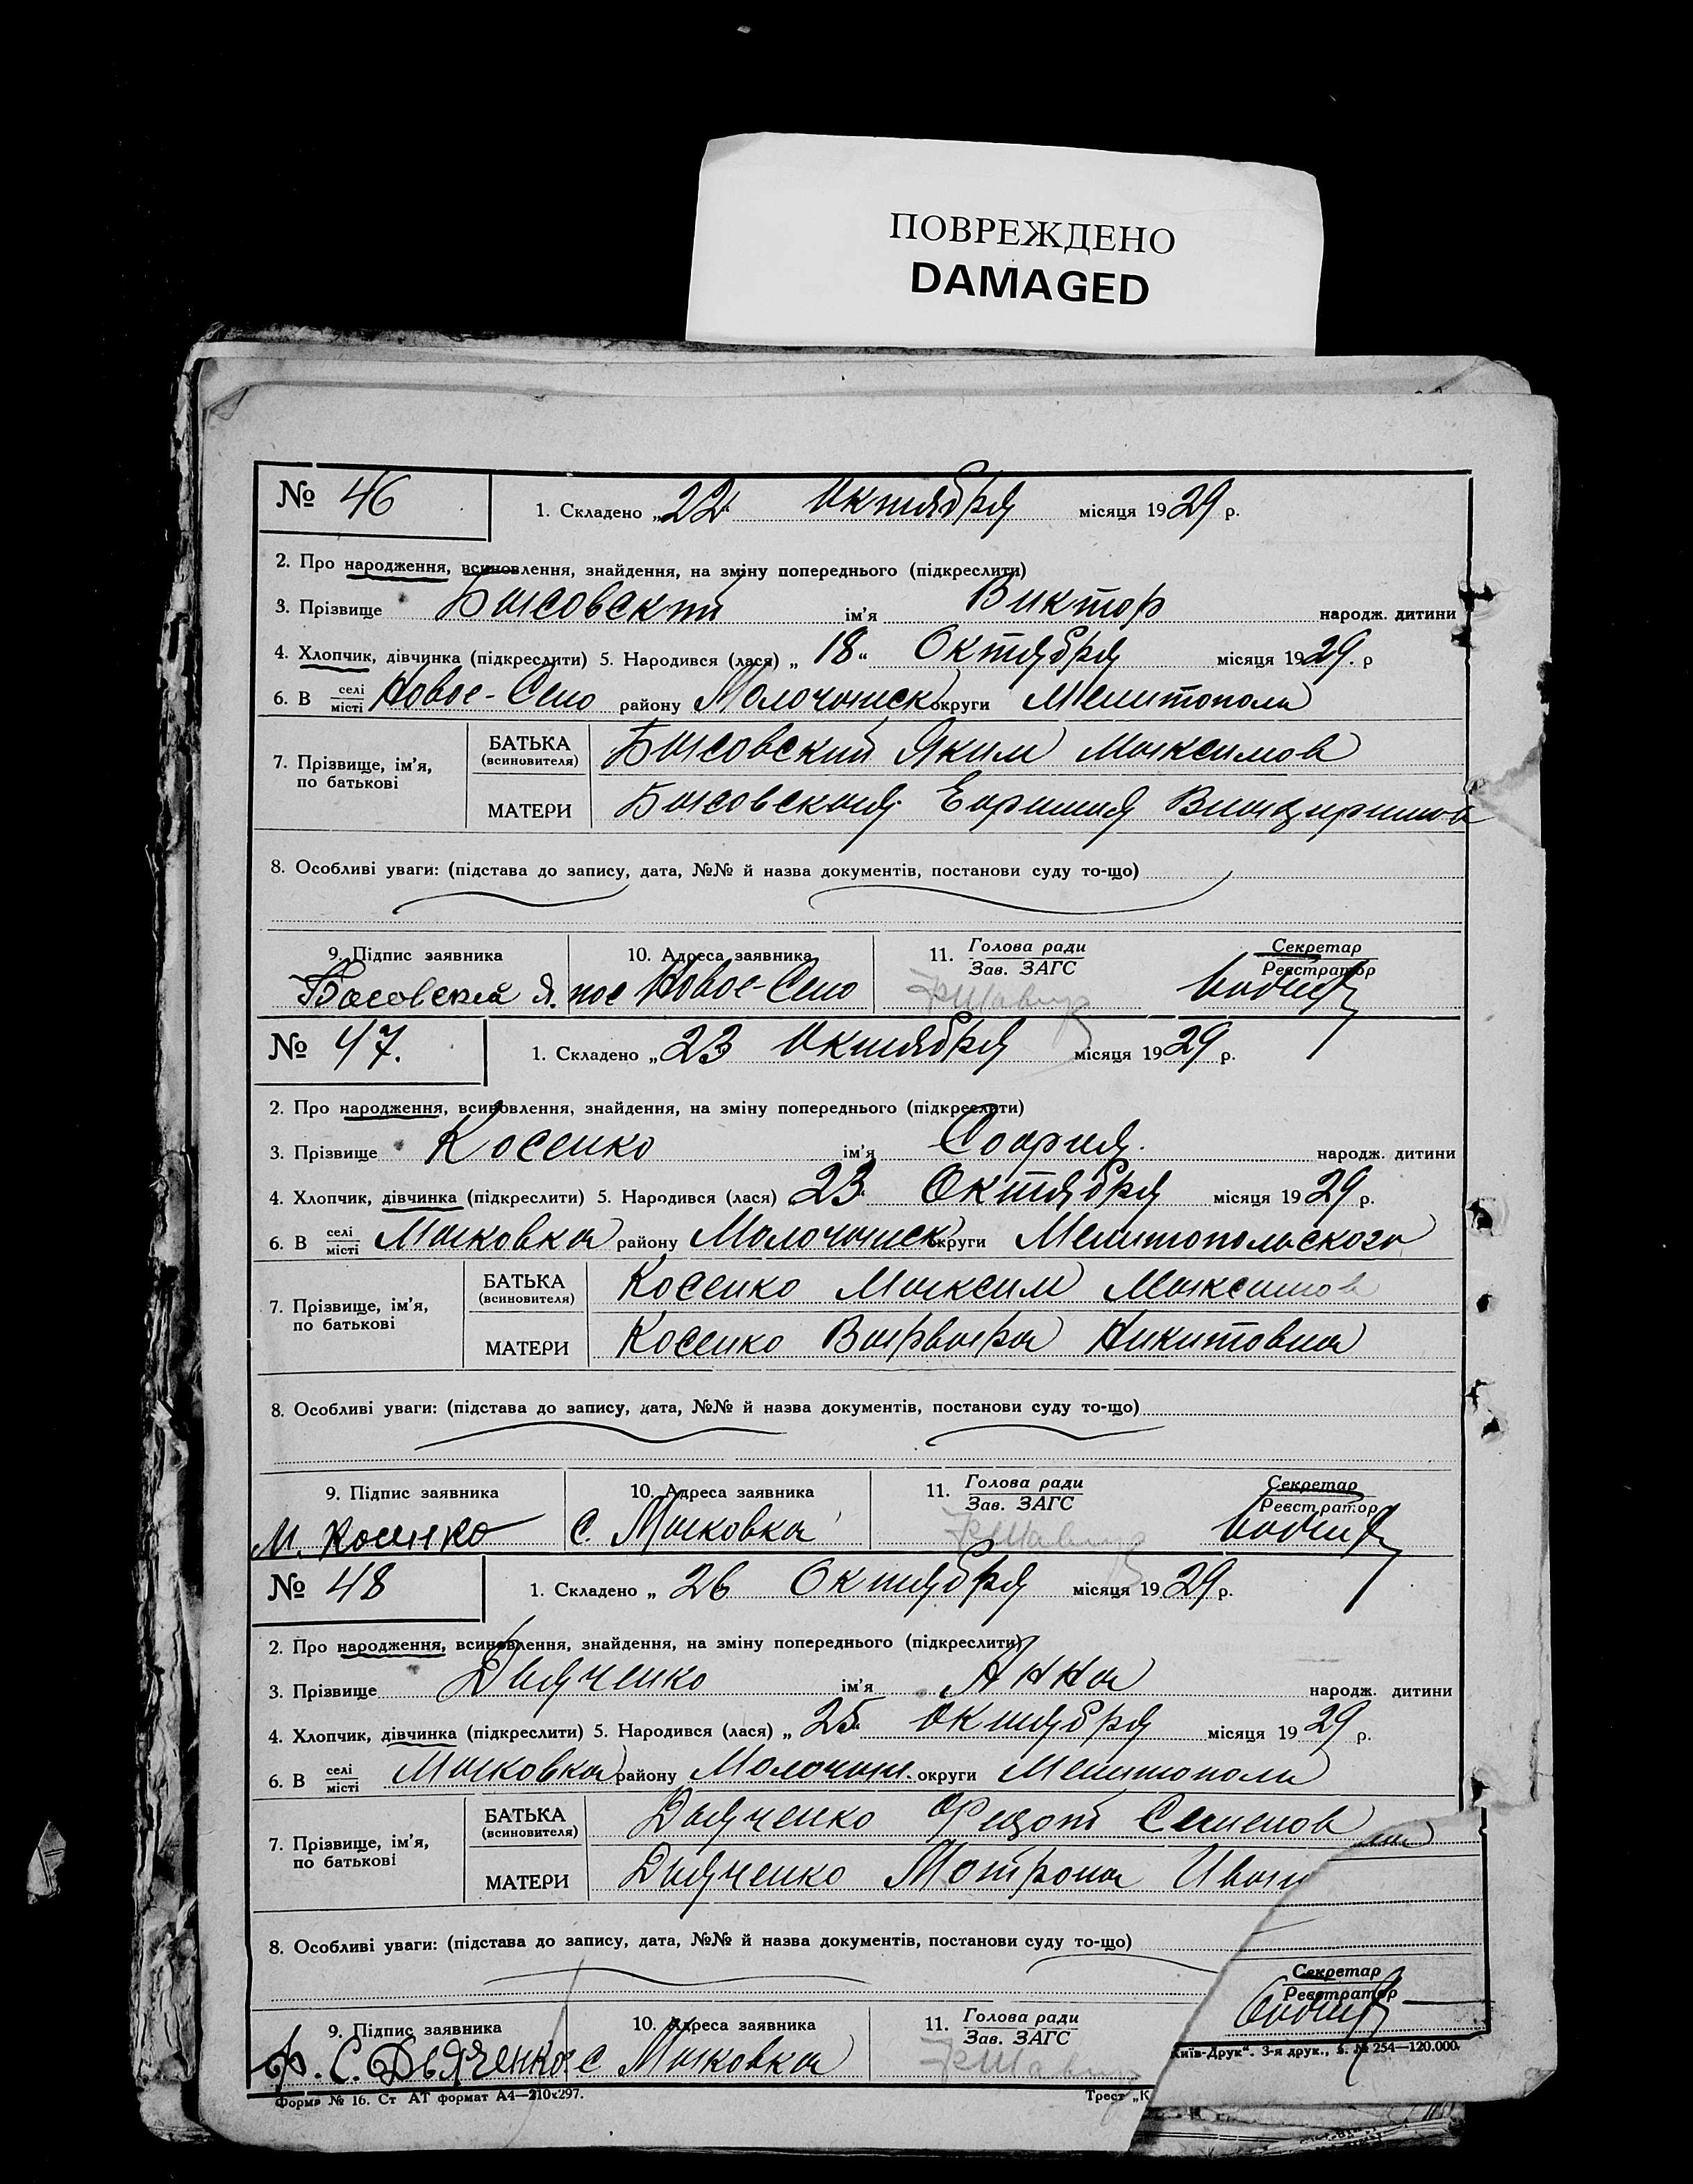 ПОВРЕЖДЕНО
DAMAGED
№ 46
1. Складено „22“ Октября місяця 1929 р.
2. Про народження, всиновлення, знайдення, на зміну попереднього (підкреслити)
3. Прізвище Басовский ім'я Виктор народж. дитини
4. Хлопчик, дівчинка (підкреслити) 5. Народився (лася) „18“ Октября місяця 1929. р
6. В селі місті Новое-Село району Молочанск округи Мелитополя
7. Прізвище, ім'я, по батькові
БАТЬКА (всиновителя) Басовский Яким Максимов
МАТЕРИ Басовская
8. Особливі уваги: (підстава до запису, дата, №№ й назва документів, постанови суду то-що)
9. Підпис заявника 10. Адреса заявника 11. Голова ради Зав. ЗАГС Секретар Реєстратор
Басовский Я. пос Новое-Село
№ 47.
1. Складено „23 Октября місяця 1929 р.
2. Про народження, всиновлення, знайдення, на зміну попереднього (підкреслити)
3. Прізвище Косенко ім'я София. народж. дитини
4. Хлопчик, дівчинка (підкреслити) 5. Народився (лася) 23“ Октября місяця 1929 р.
6. В селі місті Маковка району Молочанск округи Мелитопольского
7. Прізвище, ім'я, по батькові
БАТЬКА (всиновителя) Косенко Максим Максимов
МАТЕРИ Косенко Варвара Никитовна
8. Особливі уваги: (підстава до запису, дата, №№ й назва документів, постанови суду то-що)
9. Підпис заявника 10. Адреса заявника 11. Голова ради Зав. ЗАГС Секретар Реєстратор
М. Косенко с. Маковка
№ 48
1. Складено „ 26 Октября місяця 1929 р.
2. Про народження, всиновлення, знайдення, на зміну попереднього (підкреслити)
3. Прізвище Дьяченко ім'я Анна народж. дитини
4. Хлопчик, дівчинка (підкреслити) 5. Народився (лася) „ 25“ Октября місяця 1929 р.
6. В селі місті Маковка району Молочан. округи Мелитополя
7. Прізвище, ім'я, по батькові
БАТЬКА (всиновителя) Дьяченко Федот Семенов
МАТЕРИ Дьяченко Мотрона Иван
8. Особливі уваги: (підстава до запису, дата, №№ й назва документів, постанови суду то-що)
9. Підпис заявника 10. Адреса заявника 11. Голова ради Зав. ЗАГС Секретар Реєстратор
Ф. С. Дьяченко с Маковка
Форма № 16. Ст АТ формат А4—210x297. Трест „К Київ-Друк“. 3-я друк., з. № 254—120.000.